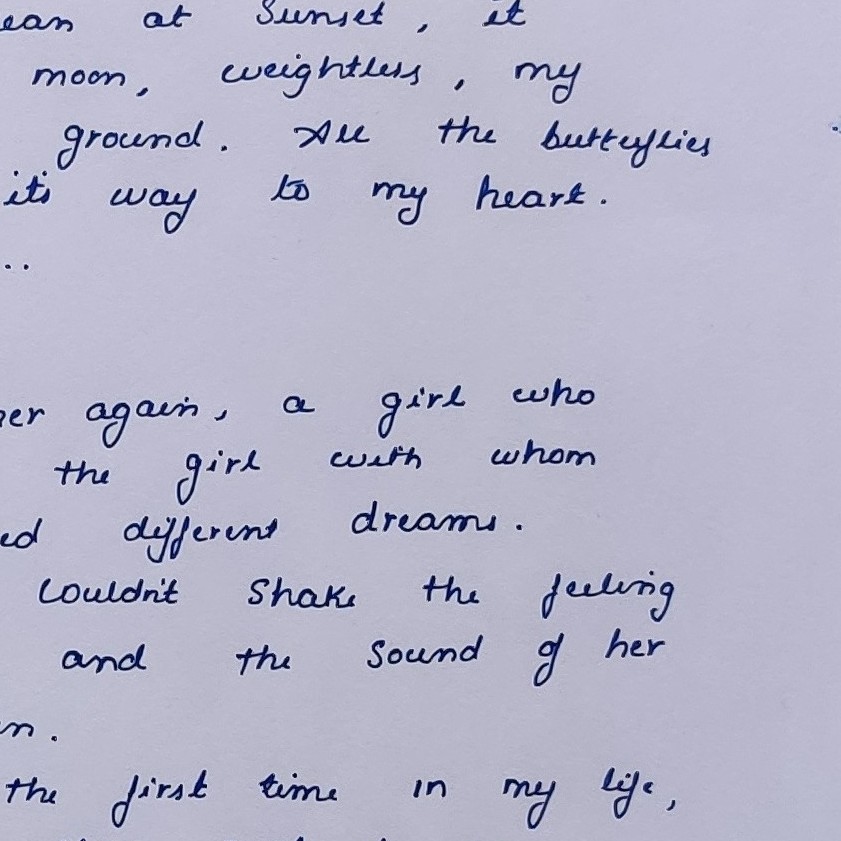 ean at Sunset, it
moon, weightless, my
ground. All the butterflies
it's way to my heart.
..
her again, a girl who
the girl with whom
ed different dreams.
Couldn't Shake the feeling
and the Sound of her
n.
the first time in my life,